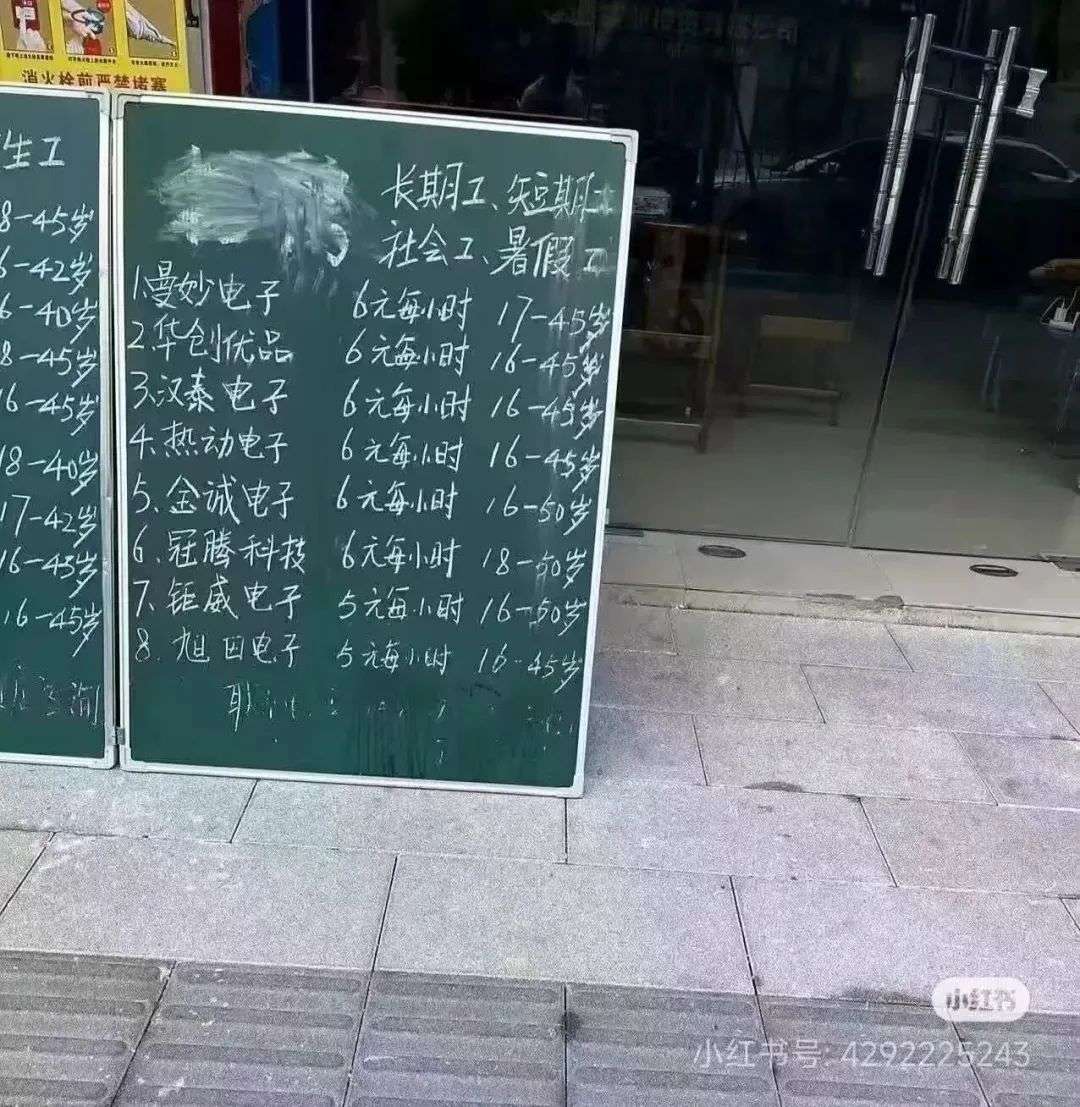 消火栓前严禁堵塞
生工
8-45岁
6-42岁
6-40岁
8-45岁
16-45岁
18-40岁
17-42岁
16-45岁
16-45岁
长期工、短期工
社会工、暑假工
1.曼妙电子 6元每小时 17-45岁
2.华创优品 6元每小时 16-45岁
3.汉泰电子 6元每小时 16-45岁
4.热动电子 6元每小时 16-45岁
5.金诚电子 6元每小时 16-50岁
6.冠腾科技 6元每小时 18-50岁
7.钜威电子 5元每小时 16-50岁
8.旭田电子 5元每小时 16-45岁
小红书
小红书号: 4292225243